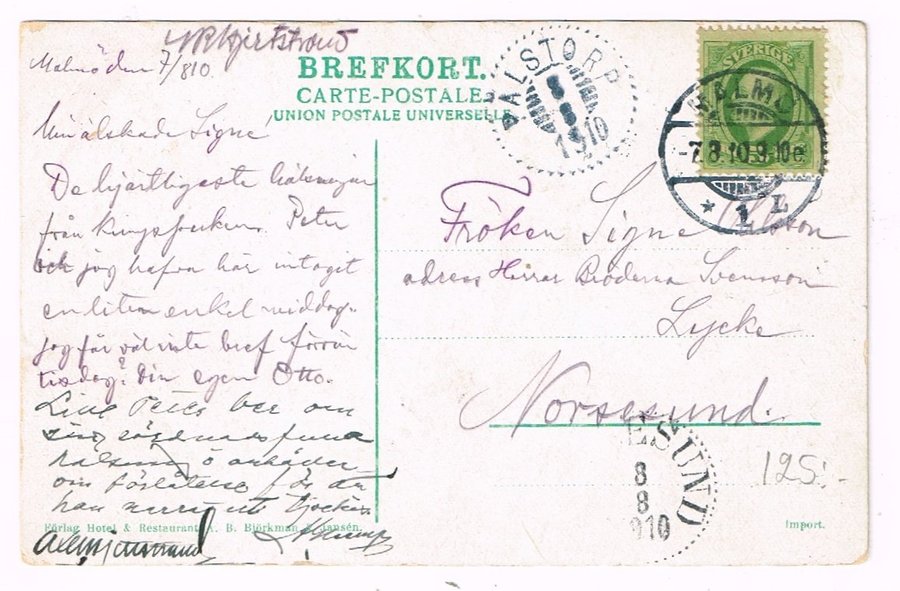 Malmö den 7/8 10.
BREFKORT.
CARTE-POSTALE.
UNION POSTALE UNIVERSELLE
Min älskade Signe
De hjärtligaste hälsningar
från Kungsparken. Peter
och jag hafva här intagit
en liten enkel middag.
jag får väl inte bref förrän
tisdag? Din egen Otto.
Lille Peter ber om
sin
hälsning o anhåller
om förlåtelse för att
han
Förlag Hotel & Restaurant A. B. Björkman & Hansén.
DALSTORP
8 8 1910
SVERIGE
MALMÖ
-7.8.10.9-10e
* 1 L
Fröken Signe Olsson
adress Herrar Bröderna Svensson
Lycke
Norsesund.
ESUND
8
8
910
125:-
Import.